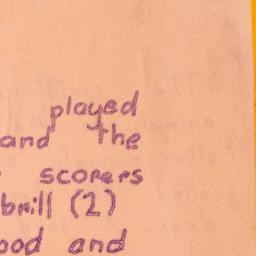 played
and the
scorers
brill (2)
ood and